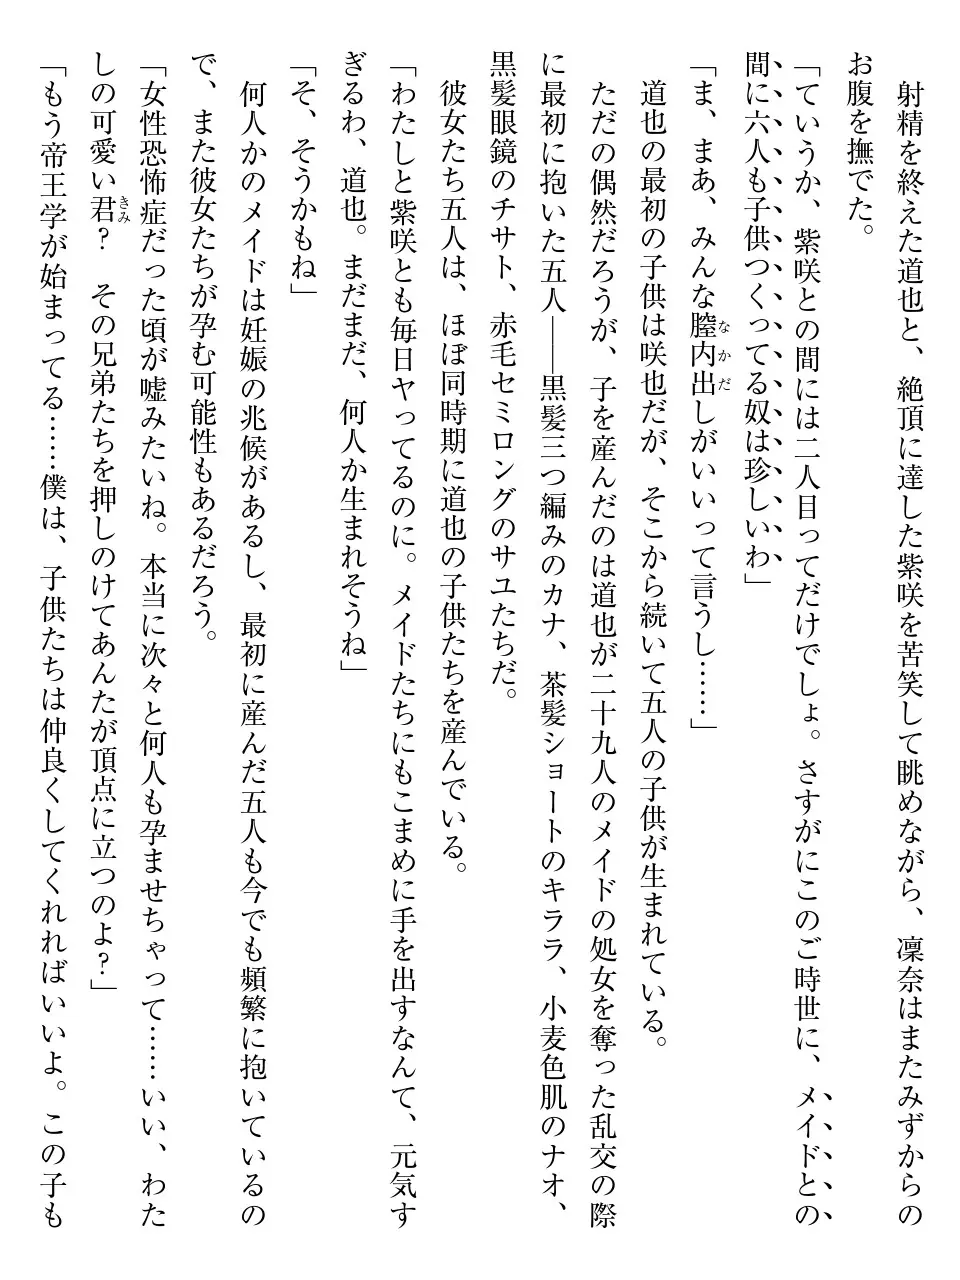 射精を終えた道也と、絶頂に達した紫咲を苦笑して眺めながら、凜奈はまたみずからの
お腹を撫でた。
「ていうか、紫咲との間には二人目ってだけでしょ。さすがにこのご時世に、メイドとの
間に六人も子供つくってる奴は珍しいわ」
「ま、まあ、みんな膣内出しがいいって言うし……」
道也の最初の子供は咲也だが、そこから続いて五人の子供が生まれている。
ただの偶然だろうが、子を産んだのは道也が二十九人のメイドの処女を奪った乱交の際
に最初に抱いた五人――黒髪三つ編みのカナ、茶髪ショートのキララ、小麦色肌のナオ、
黒髪眼鏡のチサト、赤毛セミロングのサユたちだ。
彼女たち五人は、ほぼ同時期に道也の子供たちを産んでいる。
「わたしと紫咲とも毎日ヤってるのに。メイドたちにもこまめに手を出すなんて、元気す
ぎるわ、道也。まだまだ、何人か生まれそうね」
「そ、そうかもね」
何人かのメイドは妊娠の兆候があるし、最初に産んだ五人も今でも頻繁に抱いているの
で、また彼女たちが孕む可能性もあるだろう。
「女性恐怖症だった頃が嘘みたいね。本当に次々と何人も孕ませちゃって……いい、わた
しの可愛い君？　その兄弟たちを押しのけてあんたが頂点に立つのよ？」
「もう帝王学が始まってる……僕は、子供たちは仲良くしてくれればいいよ。この子も